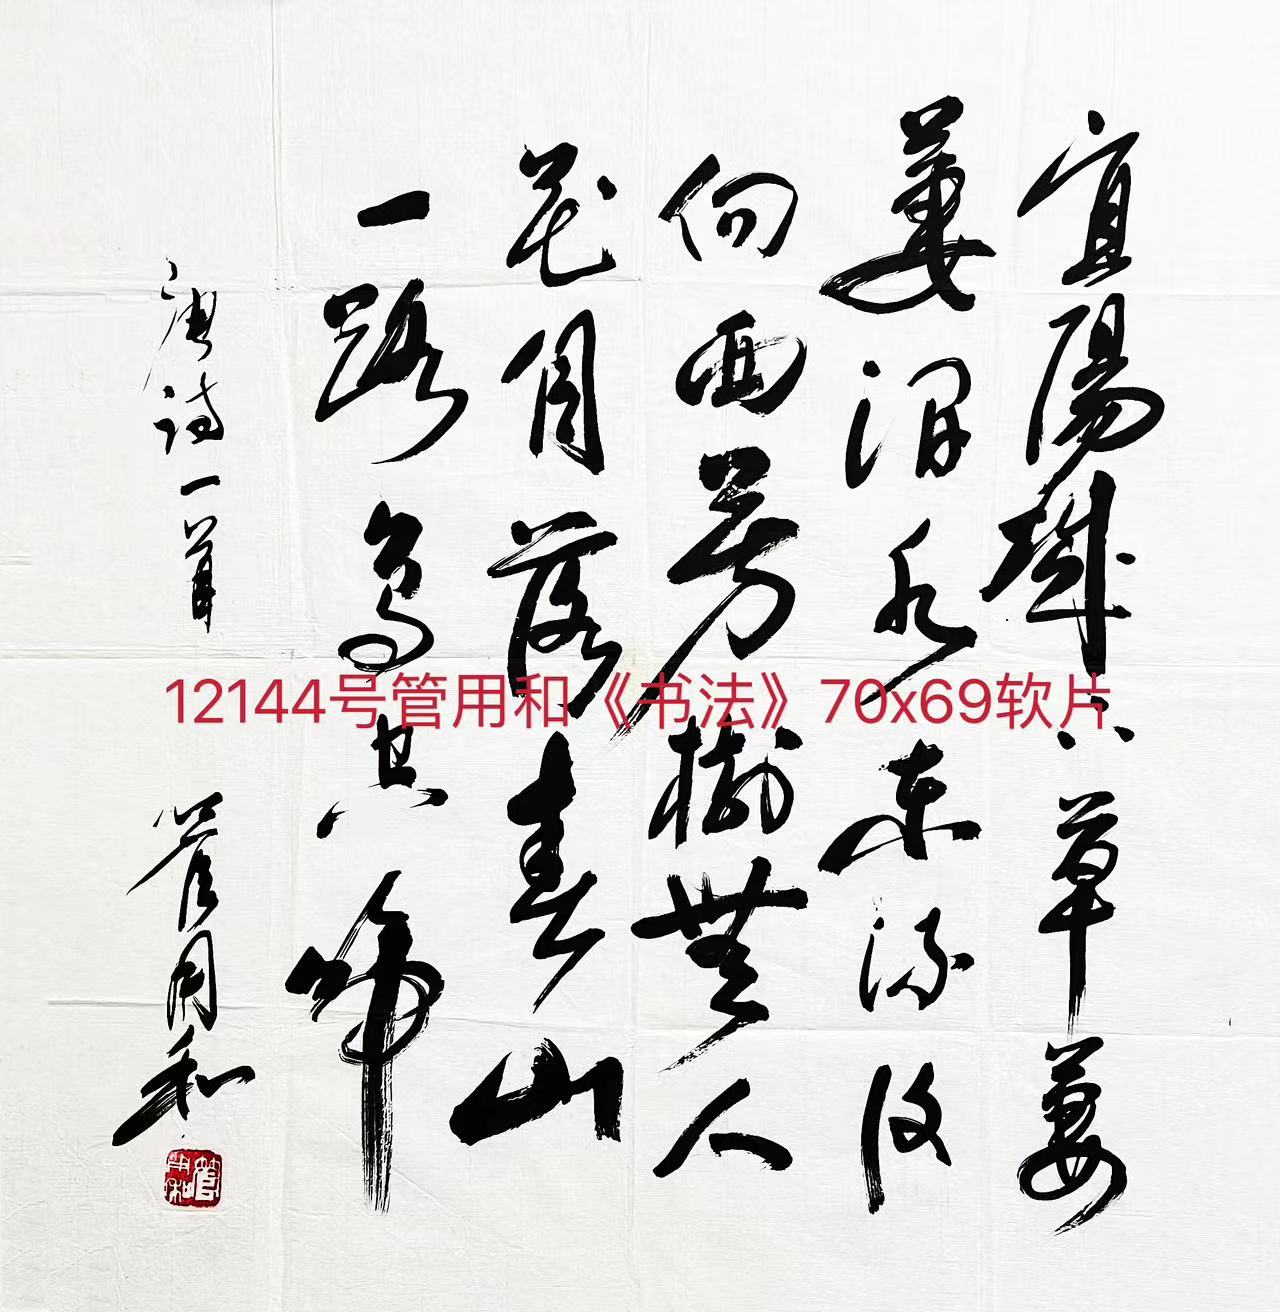 宜陽城下草萋
萋澗水東流復
向西芳樹無人
花自落春山
一路鳥空啼
唐詩一首 管用和
管用和
12144号管用和《书法》70x69软片